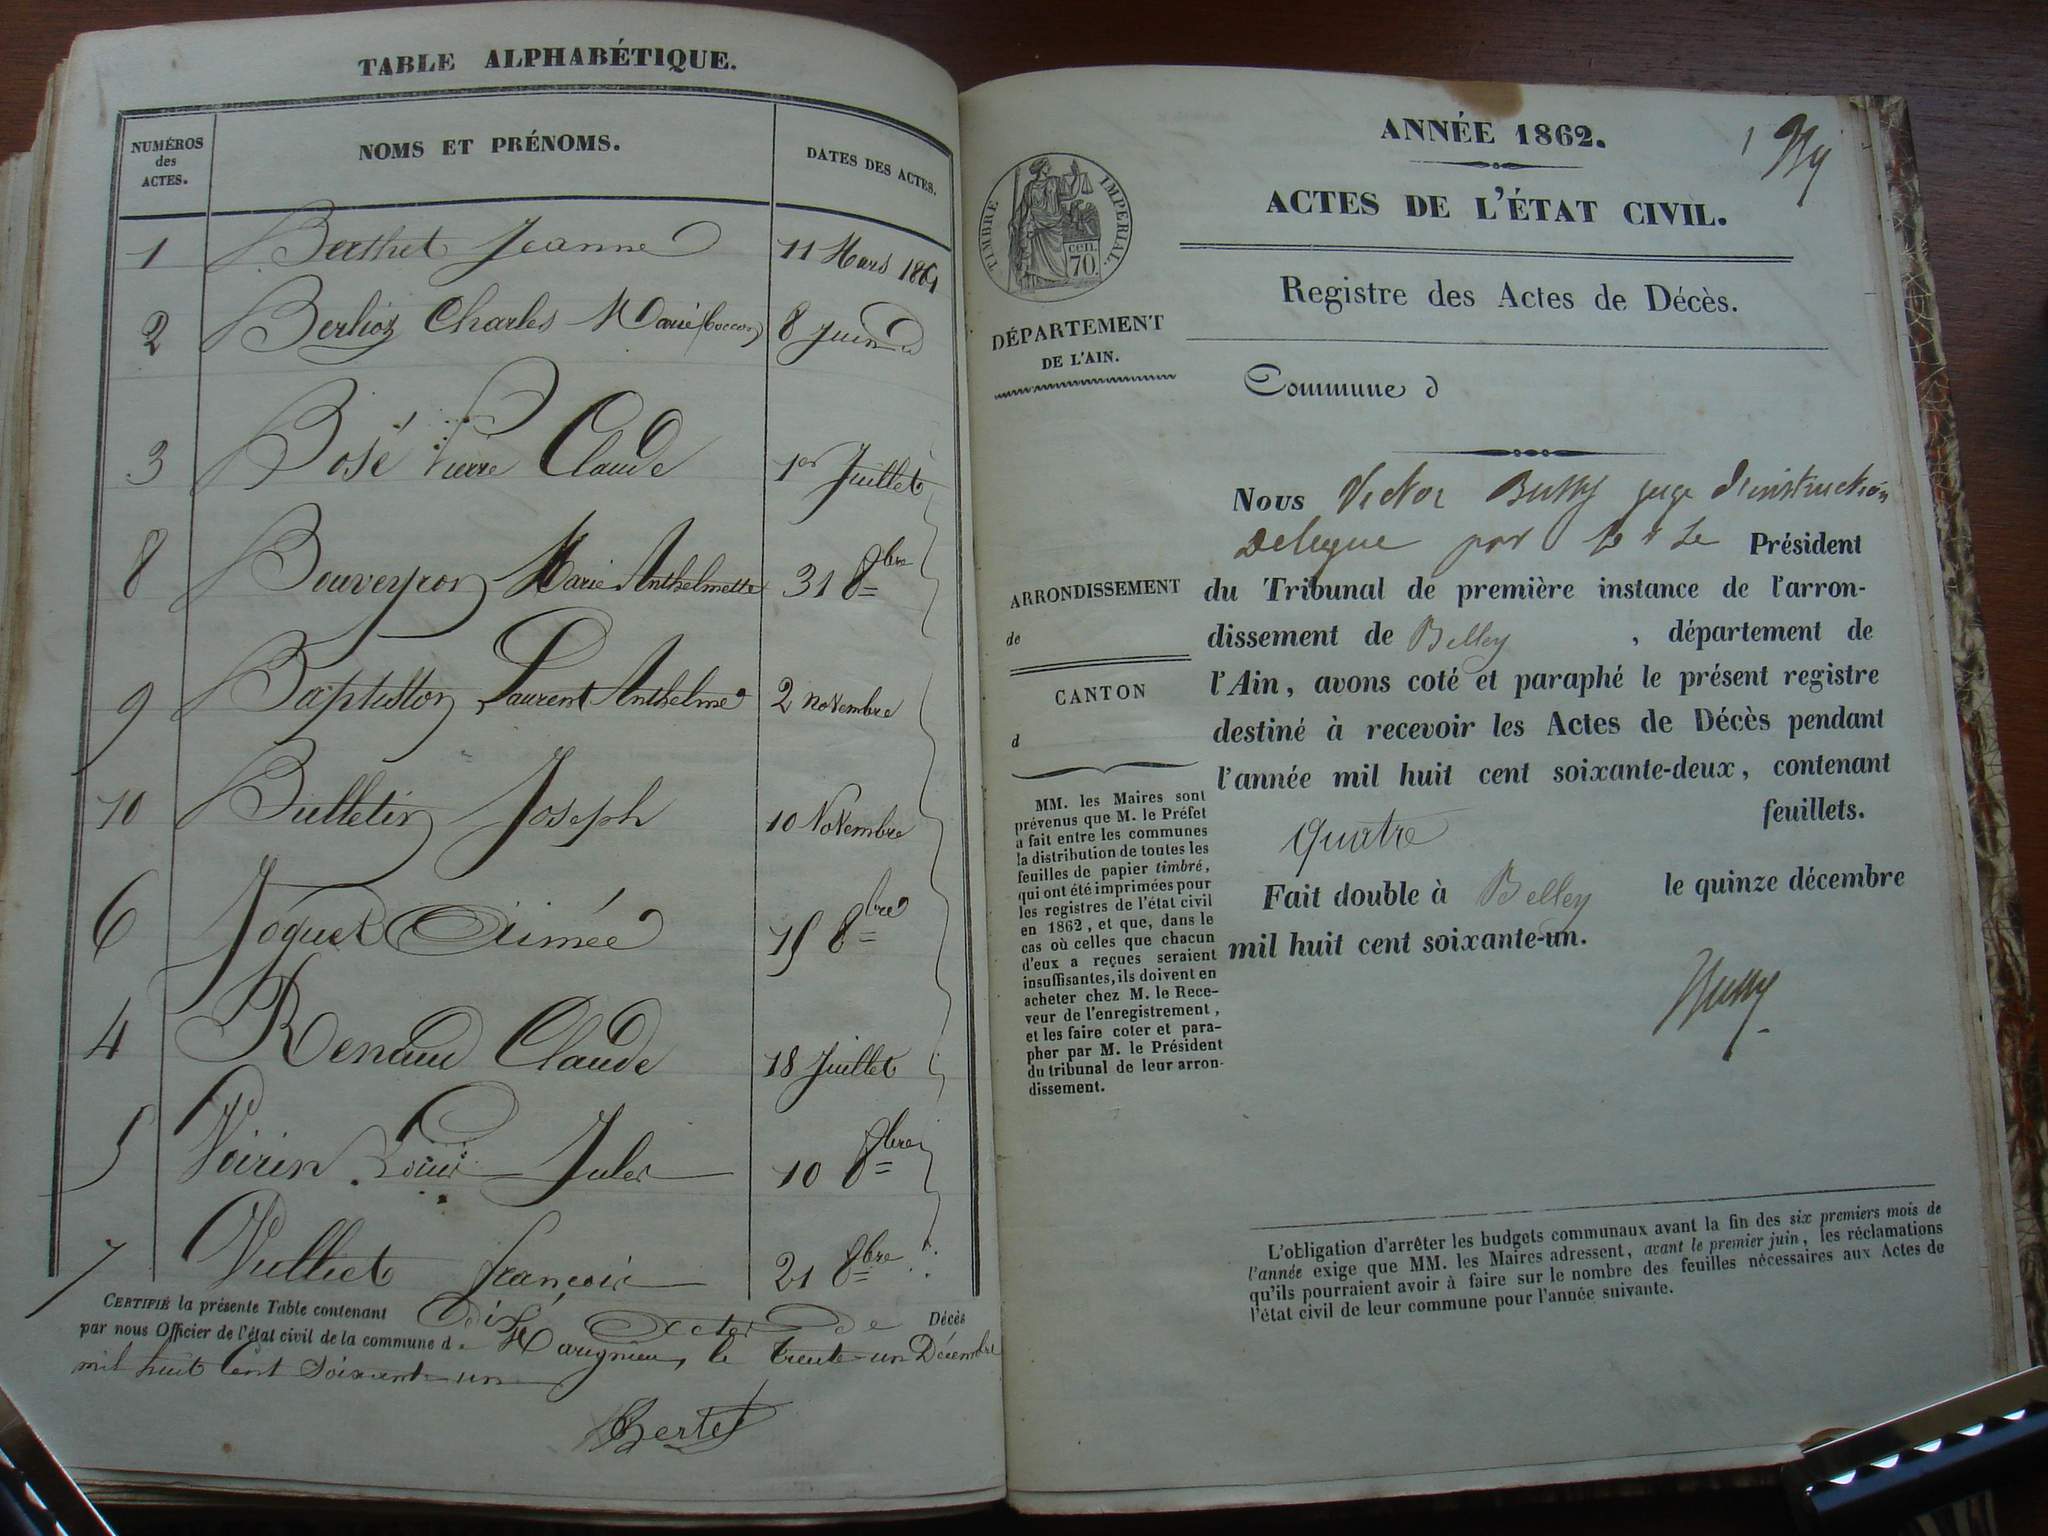 TABLE ALPHABÉTIQUE.
NUMÉROS des ACTES.
NOMS ET PRÉNOMS.
DATES DES ACTES.
1 Berthet Jeanne 11 Mars 1861
2 Berlioz Charles Marie 8 Juin
3 Bosé Pierre Claude 1er Juillet
8 Bouveyron Marie Anthelmette 31 8bre
9 Baptiston Laurent Anthelme 2 Novembre
10 Bulletin Joseph 10 Novembre
6 Joguet Aimée 15 8bre
4 Renaud Claude 18 Juillet
5 Voirin Louis Jules 10 8bre
7 Vulliet François 21 8bre
CERTIFIÉ la présente Table contenant dix Actes de Décès
par nous Officier de l'état civil de la commune de Marignieu, le trente un Décembre
mil huit cent soixante un
Bertet
ANNÉE 1862.
ACTES DE L'ÉTAT CIVIL.
Registre des Actes de Décès.
TIMBRE IMPERIAL.
70 cen.
DÉPARTEMENT
DE L'AIN.
Commune d
ARRONDISSEMENT
de
CANTON
d
MM. les Maires sont
prévenus que M. le Préfet
a fait entre les communes
la distribution de toutes les
feuilles de papier timbré,
qui ont été imprimées pour
les registres de l'état civil
en 1862, et que, dans le
cas où celles que chacun
d'eux a reçues seraient
insuffisantes, ils doivent en
acheter chez M. le Rece-
veur de l'enregistrement,
et les faire coter et para-
pher par M. le Président
du tribunal de leur arron-
dissement.
Nous Victor Bussy juge d'instruction
Delegue par Le Président
du Tribunal de première instance de l'arron-
dissement de Belley, département de
l'Ain, avons coté et paraphé le présent registre
destiné à recevoir les Actes de Décès pendant
l'année mil huit cent soixante-deux, contenant
quatre feuillets.
Fait double à Belley le quinze décembre
mil huit cent soixante-un.
Bussy
L'obligation d'arrêter les budgets communaux avant la fin des six premiers mois de
l'année exige que MM. les Maires adressent, avant le premier juin, les réclamations
qu'ils pourraient avoir à faire sur le nombre des feuilles nécessaires aux Actes de
l'état civil de leur commune pour l'année suivante.